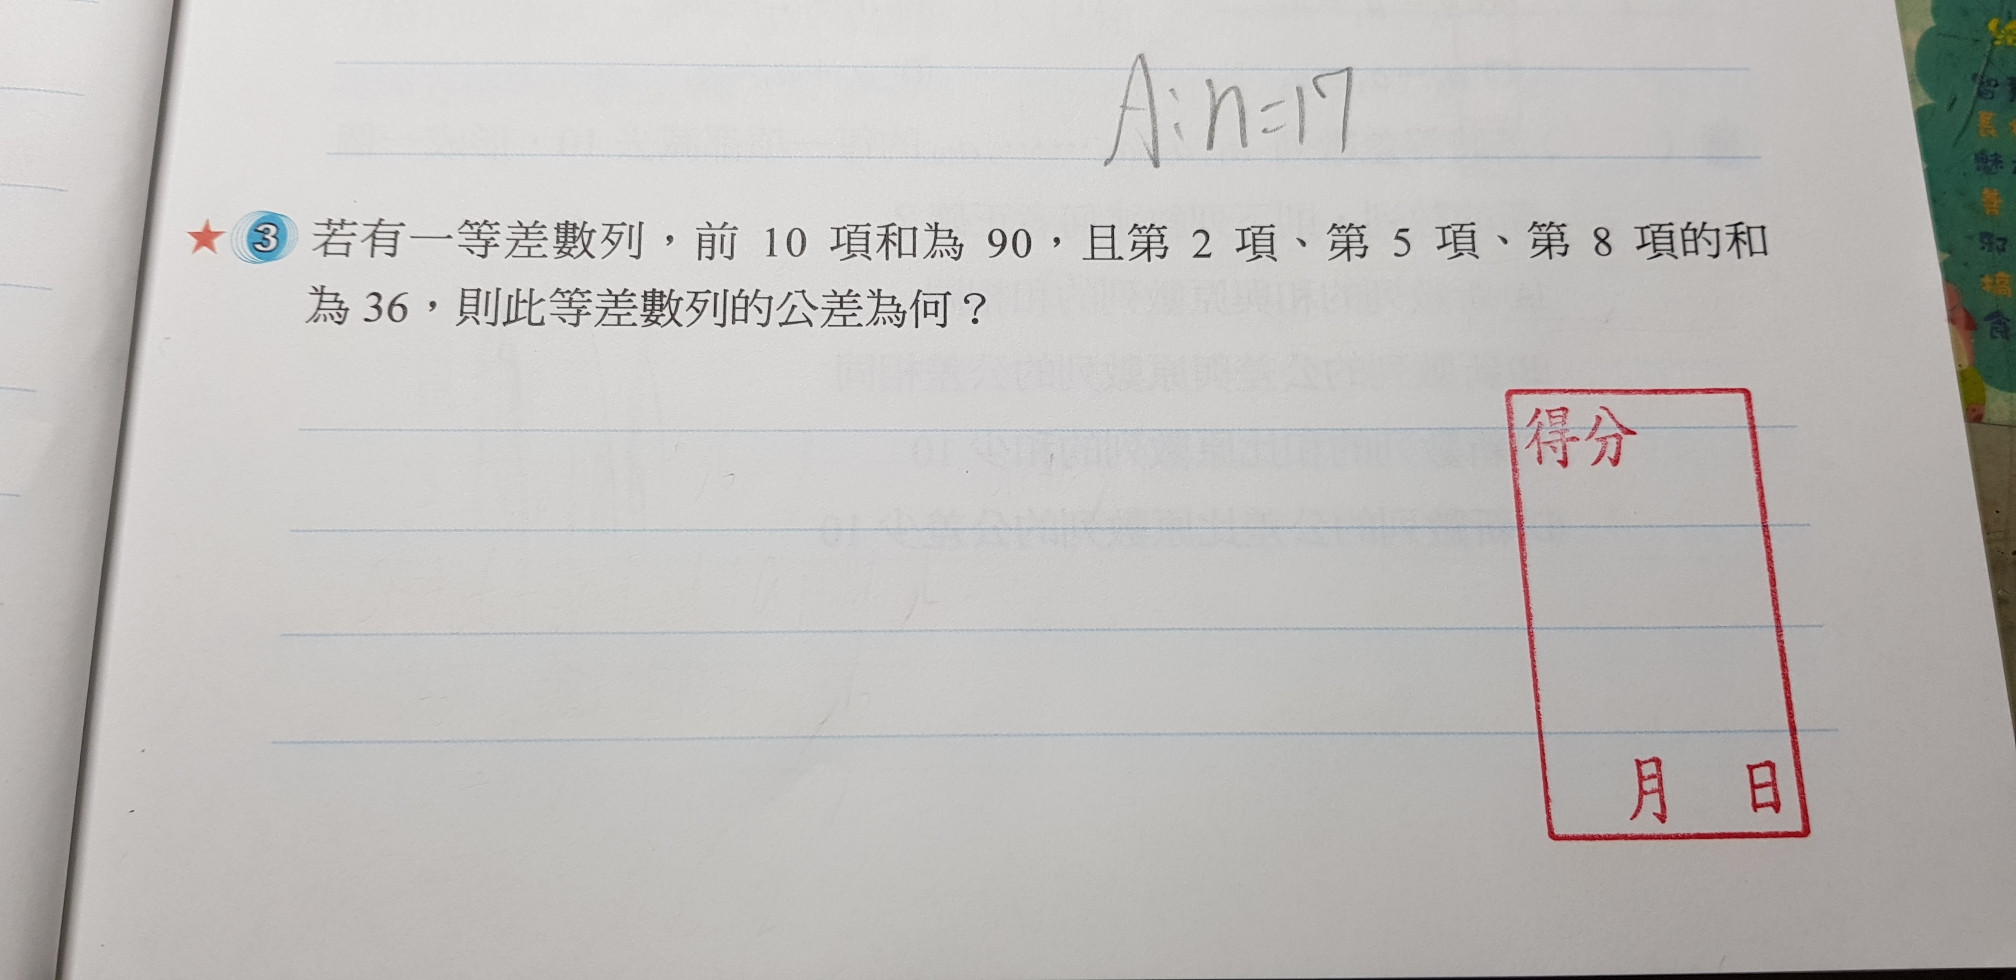 A:n=17
★ 3 若有一等差數列，前 10 項和為 90，且第 2 項、第 5 項、第 8 項的和
為 36，則此等差數列的公差為何？
得分
月 日